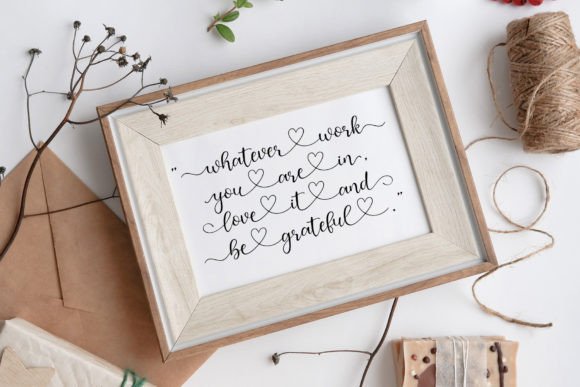 "whatever work
you are in,
love it and
be grateful."